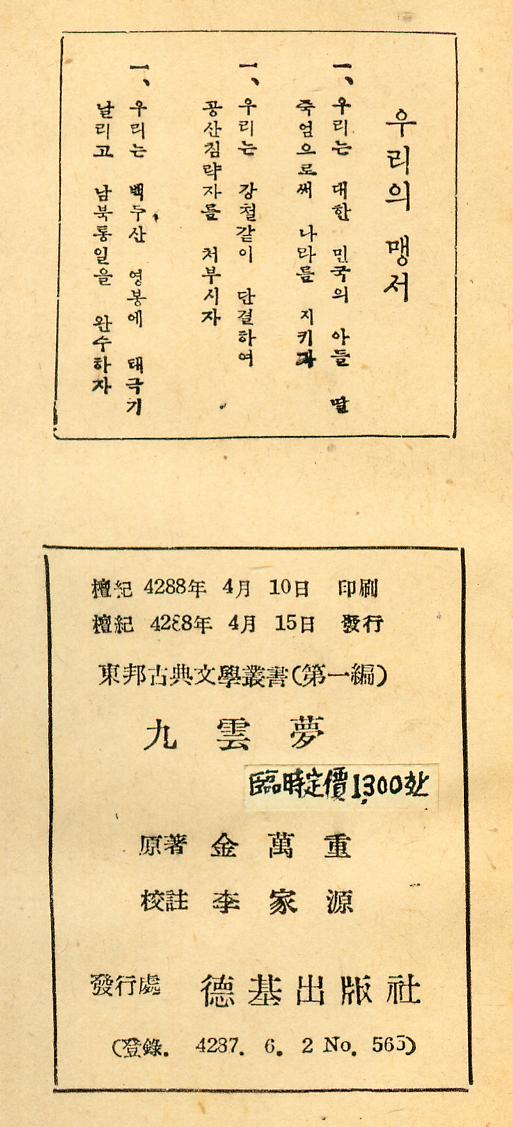 우리의 맹서
一、우리는 대한 민국의 아들 딸
죽엄으로써 나라를 지키자
一、우리는 강철같이 단결하여
공산침략자를 처부시자
一、우리는 백두산 영봉에 태극기
날리고 남북통일을 완수하자
檀紀 4288年 4月 10日 印刷
檀紀 4288年 4月 15日 發行
東邦古典文學叢書(第一編)
九雲夢
臨時定價 1,300환
原著 金萬重
校註 李家源
發行處 德基出版社
(登錄. 4287. 6. 2 No. 565)